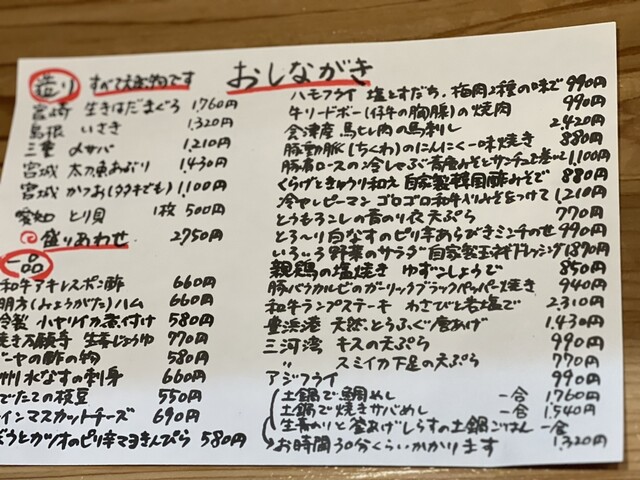 おしながき
造り すべて天然物です
宮崎 生きはだまぐろ 1,760円
島根 いさき 1,320円
三重 〆サバ 1,210円
宮城 太刀魚あぶり 1,430円
宮城 かつお(タタキでも) 1,100円
愛知 とり貝 1枚 500円
盛りあわせ 2750円
一品
和牛アキレスポン酢 660円
明方(みょうがた)ハム 660円
冷製 小ヤリイカ煮付け 580円
焼き万願寺 生姜じょうゆ 770円
の酢の物 580円
州水なすの刺身 660円
でたての枝豆 550円
インマスカットチーズ 690円
とカツオのピリ辛マヨきんぴら 580円
ハモフライ 塩とすだち、梅肉2種の味で 990円
牛リードボー(仔牛の胸腺)の焼肉 990円
会津産馬ヒレ肉の馬刺し 2,420円
豚動脈(ちくわ)のにんにく一味焼き 880円
豚肩ロースの冷しゃぶ 香味みそとサンチュ2巻 1,100円
くらげときゅうり和え 自家製韓国酢みそで 880円
冷やしピーマン ゴロゴロ和牛入りみそをつけて 1,210円
とうもろこしの青のり衣天ぷら 770円
とろ~り白なすのピリ辛あらびきミンチのせ 990円
いろいろ野菜のサラダ自家製玉ネギドレッシング 1870円
親鶏の塩焼き ゆずこしょうで 850円
豚バウカルビのガーリックブラックペッパー焼き 940円
和牛ランプステーキ わさびと岩塩で 2,310円
豊浜港 天然とうふぐ唐あげ 1,430円
三河湾 キスの天ぷら 990円
〃 スミイカ下足の天ぷら 770円
アジフライ 990円
土鍋で鯛めし 一合 1,760円
土鍋で焼きサバめし 一合 1,540円
生青のりと釜あげしらすの土鍋ごはん 一合
お時間30分くらいかかります 1,320円